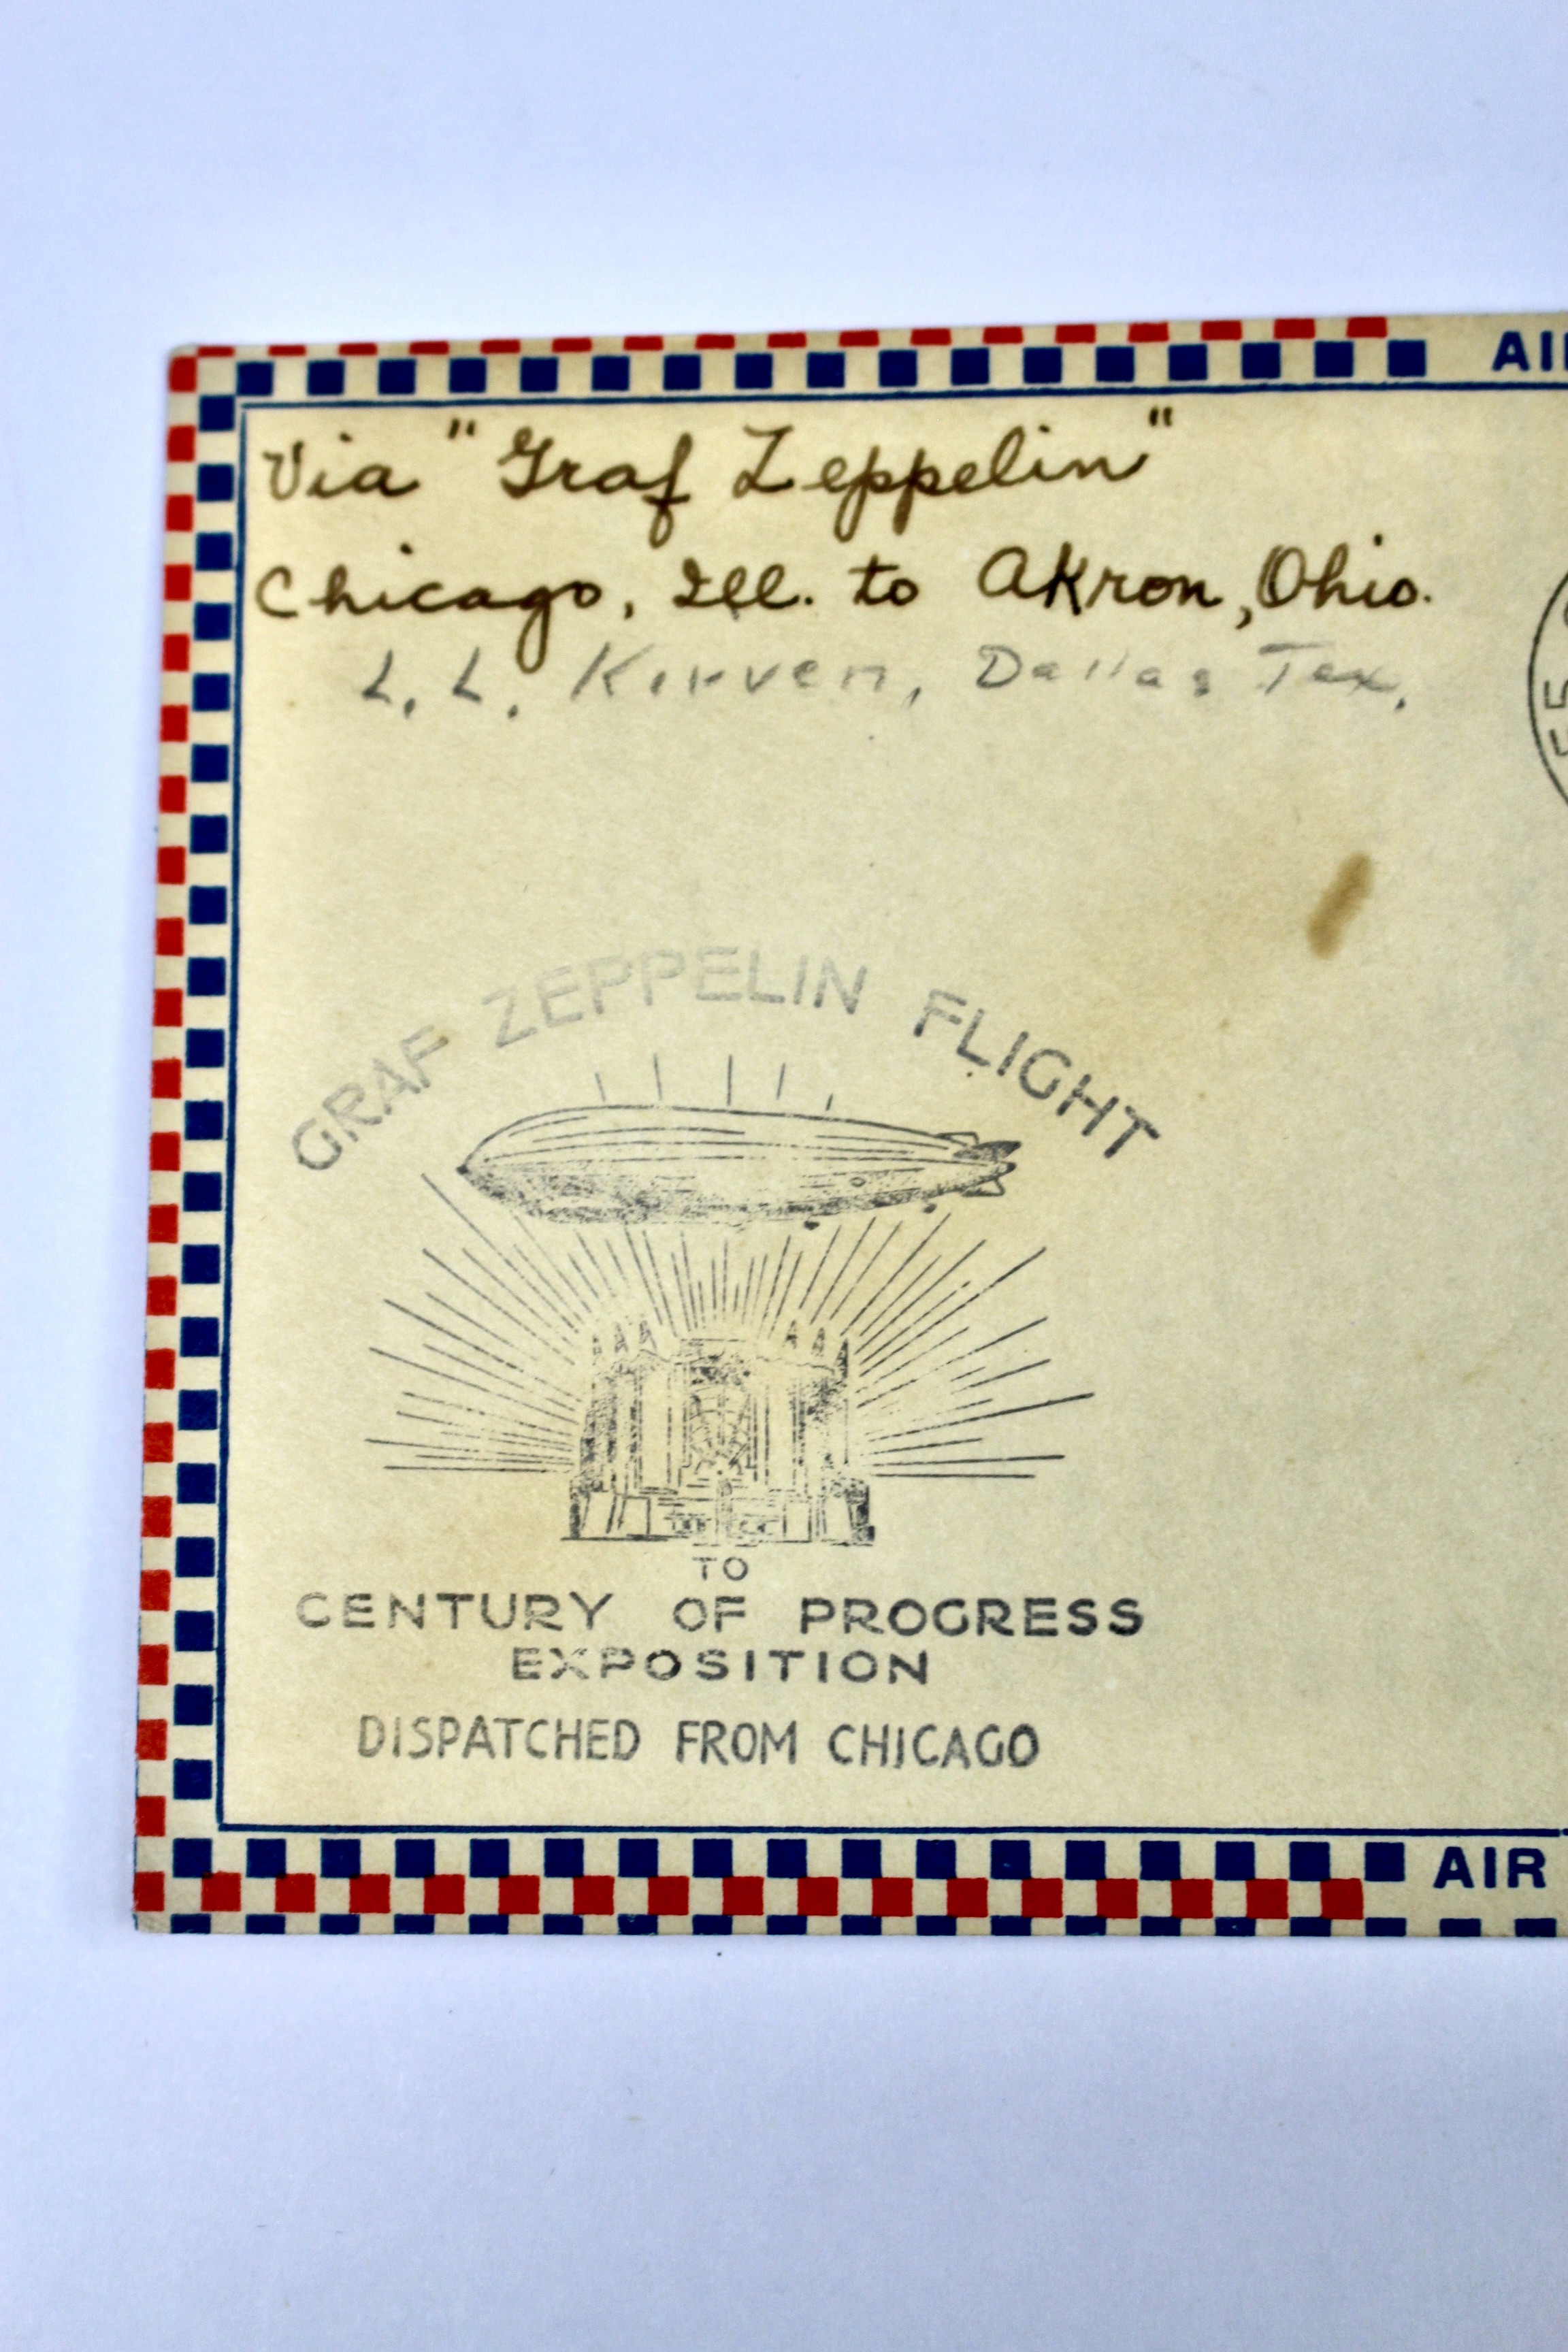 AI
Via "Graf Zeppelin"
Chicago, Ill. to Akron, Ohio.
L. L. Kirven, Dallas Tex.
GRAF ZEPPELIN FLIGHT
TO
CENTURY OF PROGRESS
EXPOSITION
DISPATCHED FROM CHICAGO
AIR